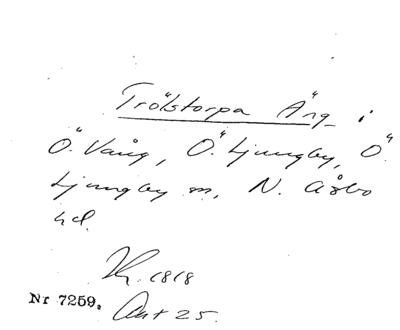 Trölstorpa Äng i
Ö. Vång, Ö. Ljungby, Ö.
Ljungby sn, N. Åsbo
hd.
1818
Nr 7259. Akt 25.